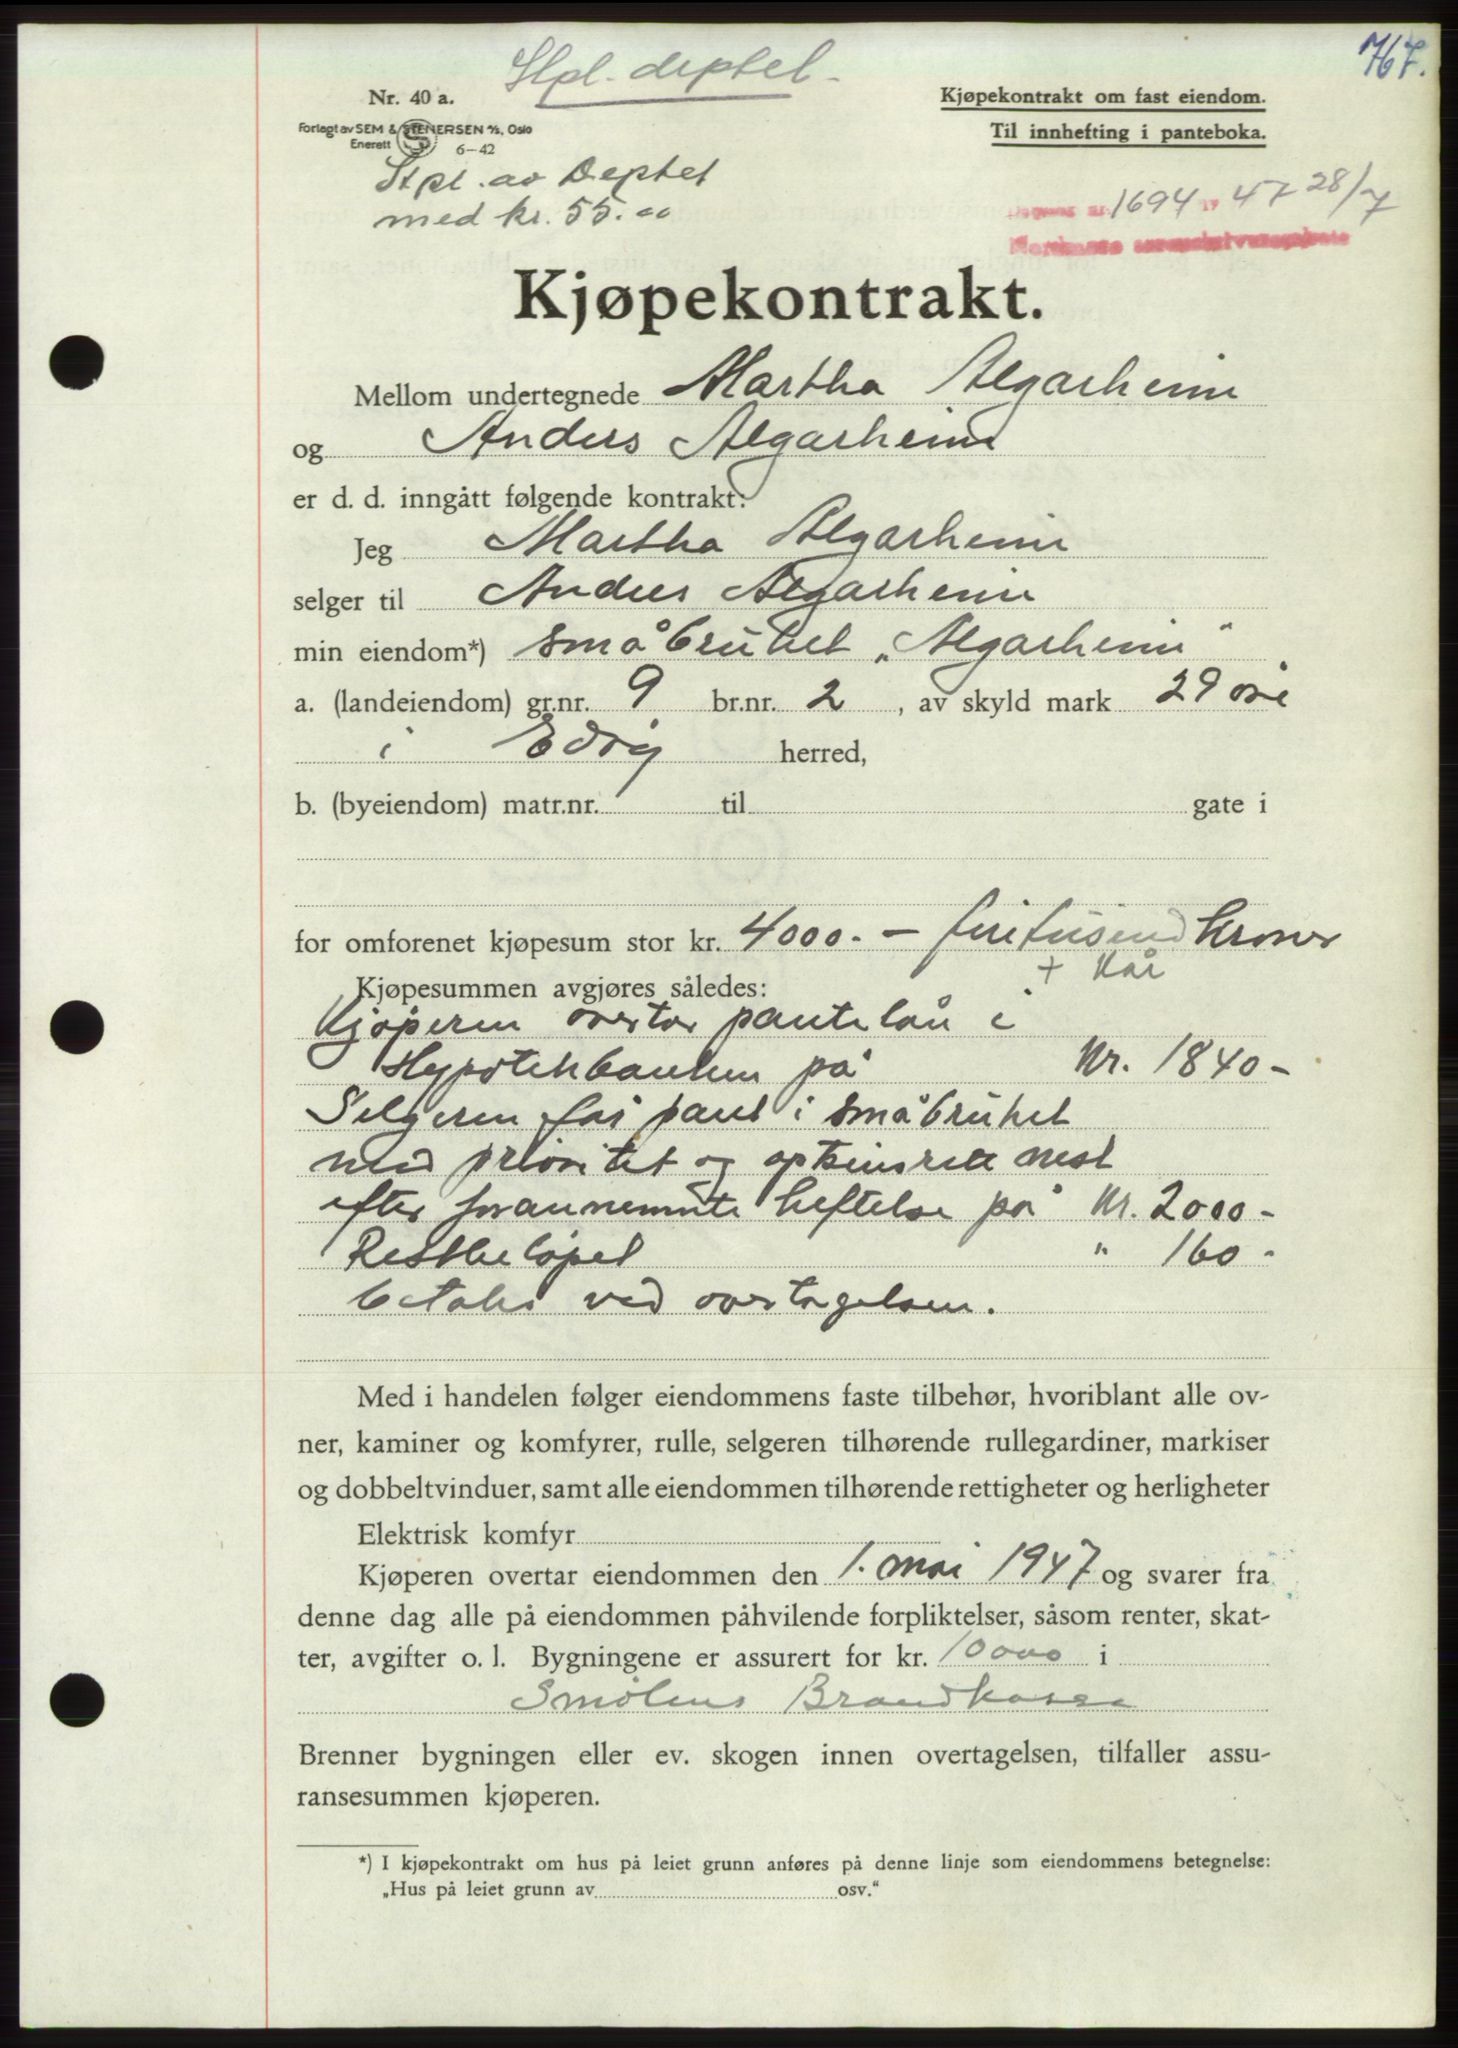 767.
Stpl. deptet.
Nr. 40 a.
Kjøpekontrakt om fast eiendom.
Forlagt av SEM & STENERSEN A/S, Oslo
Enerett 6-42
Til innhefting i panteboka.
Stpl. av Deptet
med kr. 55.00
1694 19 47 28/7
Kjøpekontrakt.
Mellom undertegnede Martha Algarheim
og Anders Algarheim
er d. d. inngått følgende kontrakt:
Jeg Martha Algarheim
selger til Anders Algarheim
min eiendom*) småbruket „Algarheim"
a. (landeiendom) gr.nr. 9 br.nr. 2, av skyld mark 29 øre
i Edøy herred,
b. (byeiendom) matr.nr. til gate i
for omforenet kjøpesum stor kr. 4000.- firetusend kroner
+ kår
Kjøpesummen avgjøres således:
Kjøperen overtar pantelån i
Hypotekbanken på Kr. 1840-
Selgeren får pant i småbruket
med prioritet og opteinsrett nest
efter forannemnte heftelse på Kr. 2000-
Restbeløpet " 160-
betales ved overtagelsen.
Med i handelen følger eiendommens faste tilbehør, hvoriblant alle ov-
ner, kaminer og komfyrer, rulle, selgeren tilhørende rullegardiner, markiser
og dobbeltvinduer, samt alle eiendommen tilhørende rettigheter og herligheter
Elektrisk komfyr
Kjøperen overtar eiendommen den 1. mai 1947 og svarer fra
denne dag alle på eiendommen påhvilende forpliktelser, såsom renter, skat-
ter, avgifter o. l. Bygningene er assurert for kr. 10000 i
Smølens Brandkasse
Brenner bygningen eller ev. skogen innen overtagelsen, tilfaller assu-
ransesummen kjøperen.
*) I kjøpekontrakt om hus på leiet grunn anføres på denne linje som eiendommens betegnelse:
„Hus på leiet grunn av osv."